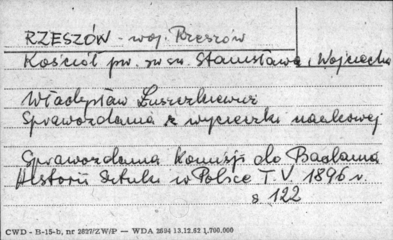 RZESZÓW - woj. Rzeszów
Kościół pw. śwśw. Stanisława i Wojciecha
Władysław Łuszczkiewicz
Sprawozdania z wycieczki naukowej
Sprawozdania Komisji do Badania
Historii Sztuki w Polsce T. V. 1896 r.
s 122
CWD - B-15-b, nr 2627/ZW/P — WDA 2694 13.12.62 1,700.000